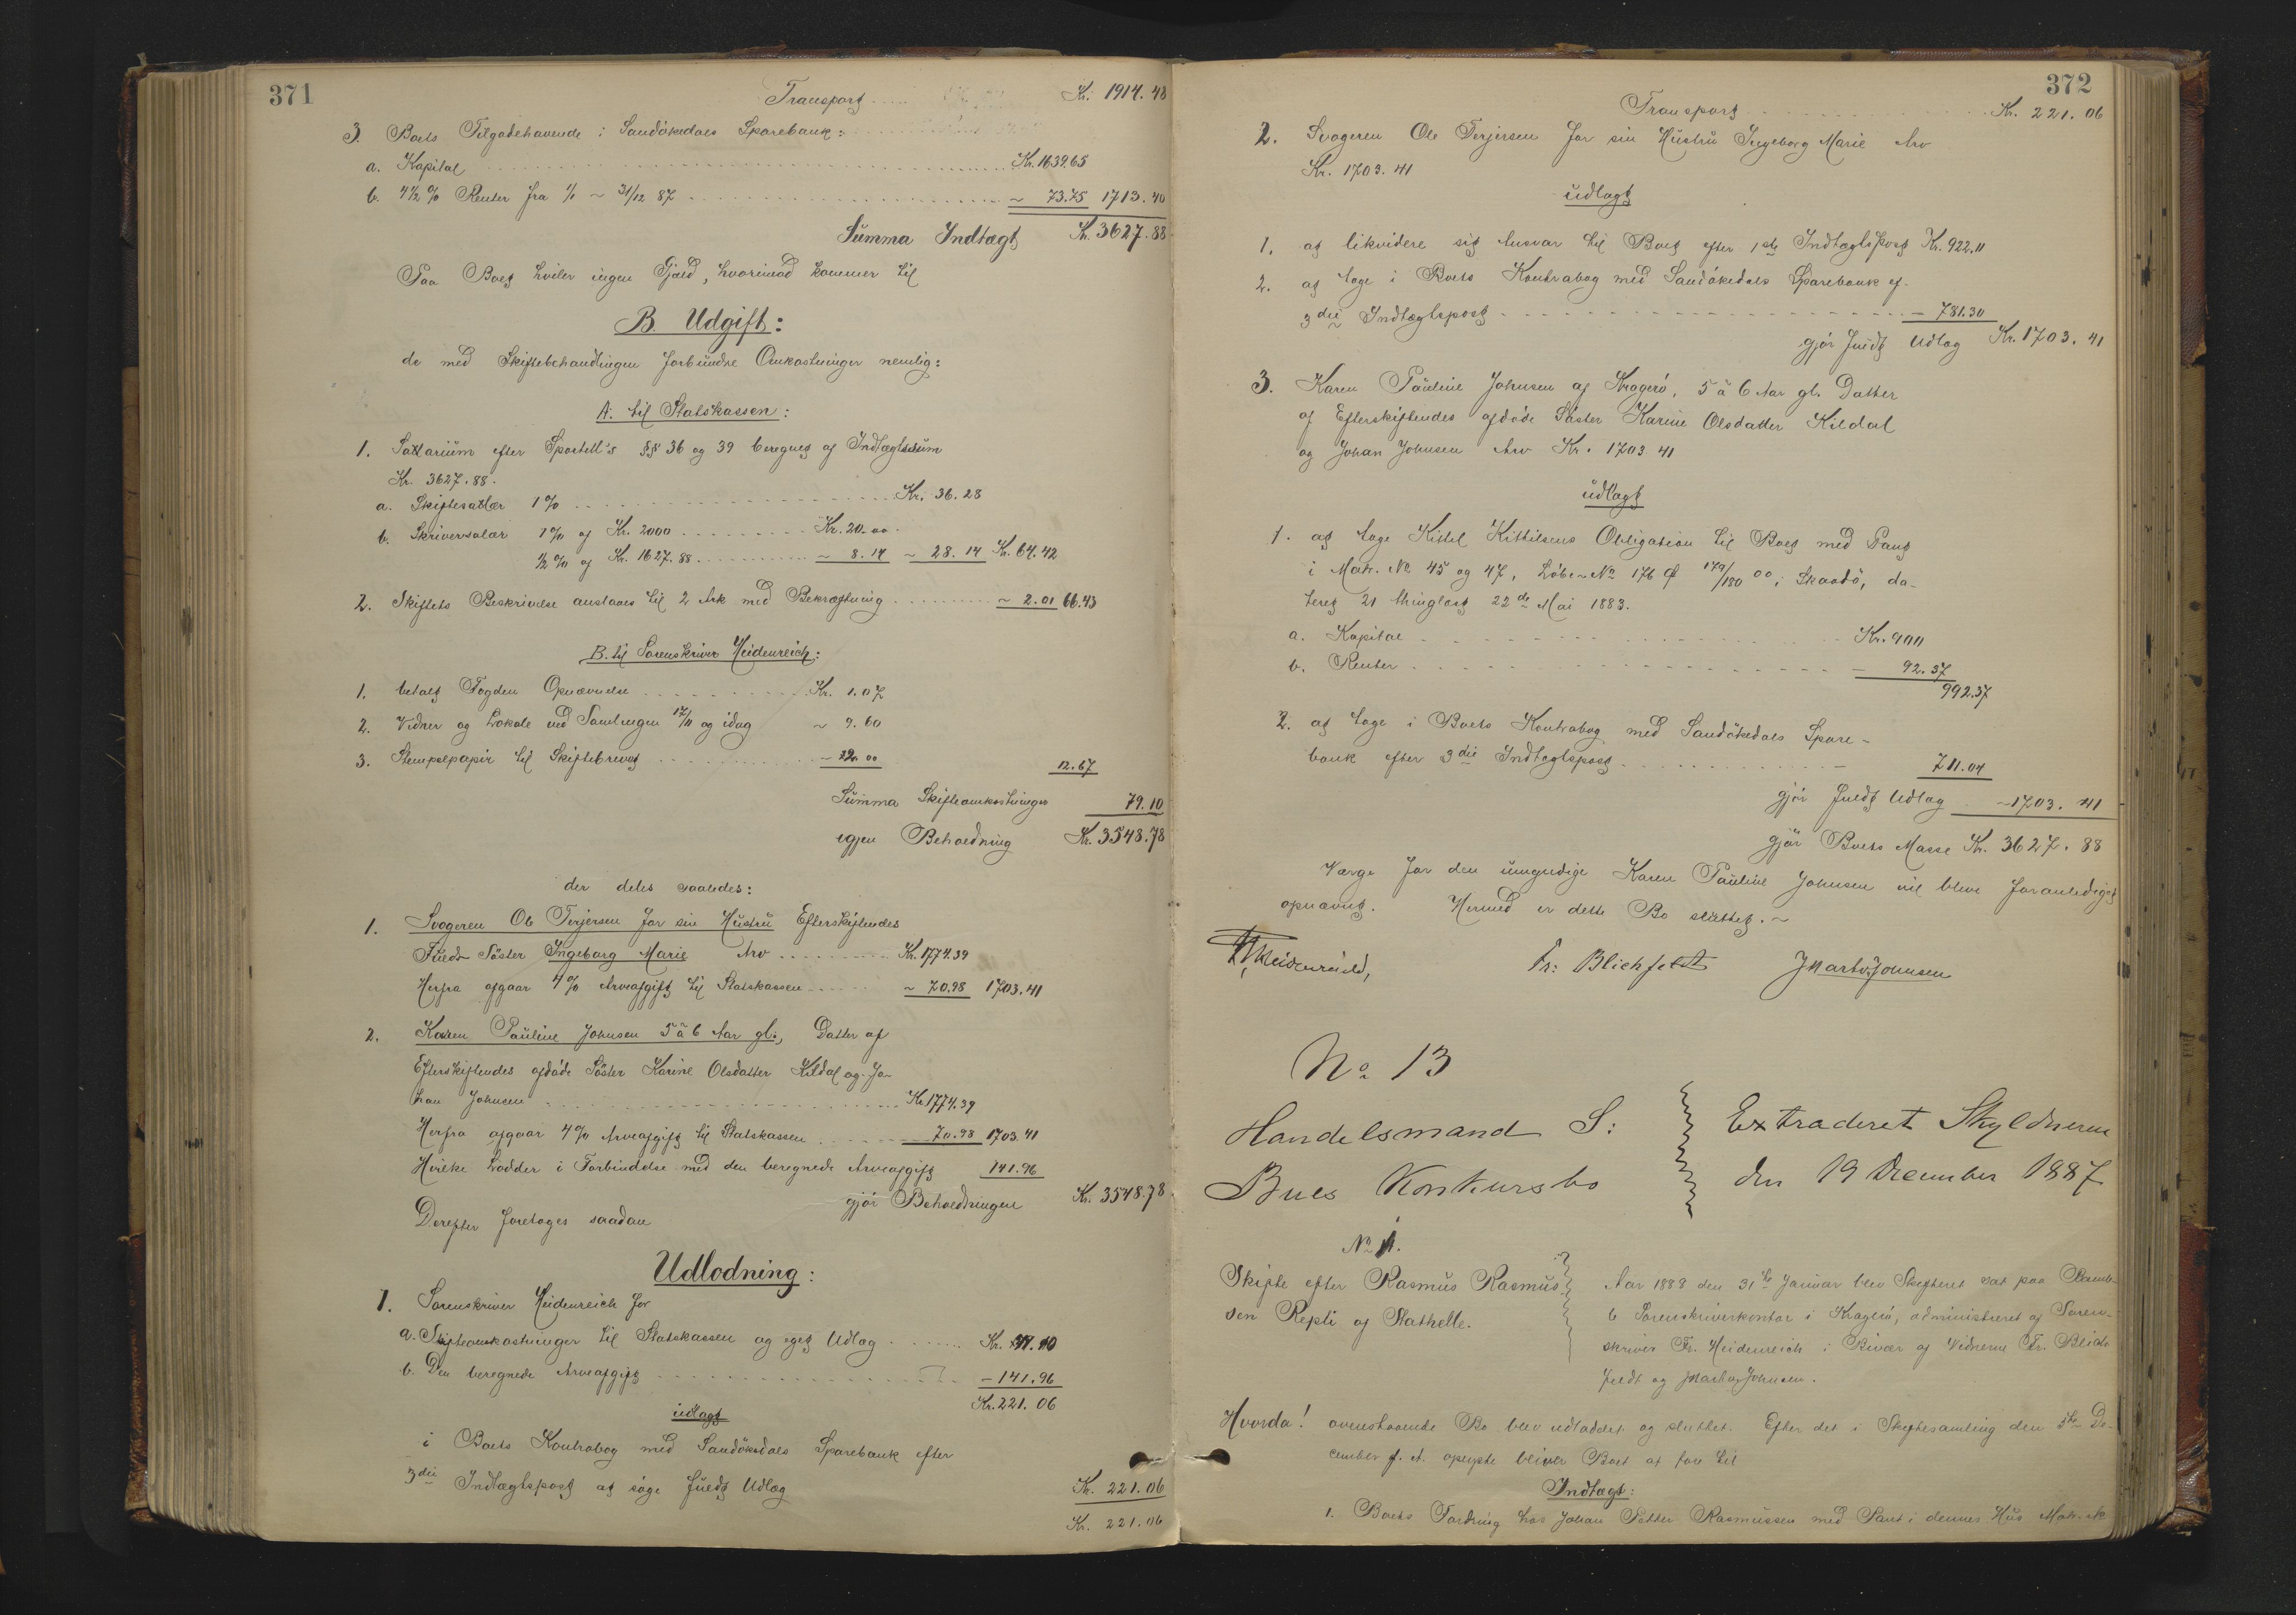 371
Transport ..... Kr. 1914.48
3. Boets Tilgodehavende i Sandökedals Sparebank:
a. Kapital Kr. 1639.65
b. 4½ % Renter fra 1/1 ~ 31/12 87 ~ 73.75 1713.40
Summa Indtægt Kr. 3627.88
Paa Boet hviler ingen Gjæld, hvorimod kommer til
B. Udgift:
de med Skiftebehandlingen forbundne Omkostninger nemlig:
A. til Statskassen:
1. Sallarium efter Sportell's §§ 36 og 39 beregnet af Indtægtssum
Kr. 3627.88.
a. Skiftesallær 1 % Kr. 36.28
b. Skriversalær 1 % af Kr. 2000 Kr. 20.00
½ % af Kr. 1627.88 ~ 8.14 ~ 28.14 Kr. 64.42
2. Skiftets Beskrivelse anslaaes til 2 Ark med Bekræftning ~ 2.01 66.43
B. til Sorenskriver Heidenreich:
1. betalt Fogden Opnævnelse Kr. 1.07
2. Vidner og Lokale ved Samlingen 17/11 og idag ~ 9.60
3. Stempelpapir til Skiftebrevet ~ 2.00 12.67
Summa Skifteomkostninger 79.10
igjen Beholdning Kr. 3548.78
der deles saaledes:
1. Svogeren Ole Terjersen for sin Hustru Efterskiftendes
Fulds Söster Ingeborg Marie Arv Kr. 1774.39
Herfra afgaar 4 % Arveafgift til Statskassen ~ 70.98 1703.41
2. Karen Pauline Johnsen 5 à 6 Aar gl., Datter af
Efterskiftendes afdöde Söster Karine Olsdatter Kildal og Jo-
han Johnsen Kr 1774.39
Herfra afgaar 4 % Arveafgift til Statskassen 70.98 1703.41
Hvilke Lodder i Forbindelse med den beregnede Arveafgift 141.96
gjör Beholdningen Kr. 3548.78
Derefter foretages saadan
Udlodning:
1. Sorenskriver Heidenreich for
a. Skifteomkostninger til Statskassen og eget Udlæg Kr. 79.10
b. Den beregnede Arveafgift - 141.96
Kr. 221.06
udlagt
i Boets Kontrabog med Sandökedals Sparebank efter
3die Indtægtspost at söge fuldt Udlæg Kr. 221.06
Kr. 221.06
372
Transport Kr. 221.06
2. Svogeren Ole Terjersen for sin Hustru Ingeborg Marie Arv
Kr. 1703.41
udlagt
1. at likvidere sig Ansvar til Boet efter 1ste Indtægtspost Kr. 922.11
2. at tage i Boets Kontrabog med Sandökedals Sparebank ef.
3die Indtægtspost - 781.30
gjör fuldt Udlæg Kr. 1703.41
3. Karen Pauline Johnsen af Kragerö, 5 à 6 Aar gl. Datter
af Efterskiftendes afdöde Söster Karine Olsdatter Kildal
og Johan Johnsen Arv Kr. 1703.41
udlagt
1. at tage Kittel Kittilsens Obligation til Boet med Pant
i Matr. No 45 og 47, Löbe-No 176 & 179/180 00, i Skaadö, da-
teret 21 thinglæst 22de Mai 1883.
a. Kapital Kr. 900
b. Renter - 92.37
992.37
2. at tage i Boets Kontrabog med Sandökedals Spare-
bank efter 3die Indtægtspost - 711.04
gjör fuldt Udlæg - 1703.41
gjör Boets Masse Kr. 3627.88
Værge for den umyndige Karen Pauline Johnsen vil blive foranlediget
opnævnt. Hermed er dette Bo sluttet. ~
Heidenreich, Fr: Blichfeldt J Martv Johnsen
No 13
Handelsmand S: Extraderet Skyldneren
Bues Konkursbo den 19 December 1887
No 1.
Skifte efter Rasmus Rasmus- Aar 1888 den 31te Januar blev Skifteret sat paa Bamb-
sen Repli af Stathelle. le Sorenskriverkontor i Kragerö, administreret af Soren-
skriver Fr. Heidenreich i Bivær af Vidnerne Fr. Blich-
feldt og J Martv Johnsen.
Hvorda! ovenstaaende Bo blev udloddet og sluttet. Efter det i Skiftesamling den 5te De-
cember f. A. oplyste bliver Boet at före til
Indtægt:
1. Boets Fordring hos Johan Petter Rasmussen med Pant i dennes Hus Matr. No